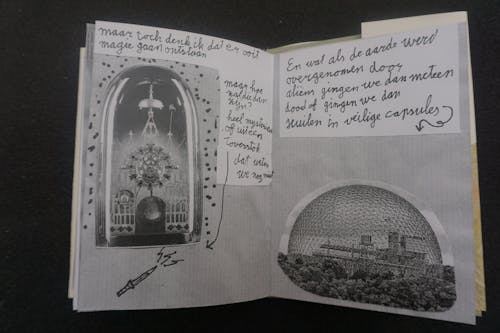 maar toch denk ik dat er ooit
magie gaan ontstaan
maar hoe
zal die dan
zijn?
heel mysterieus
of uit een
toverstok
dat weten
we nog niet
En wat als de aarde werd
overgenomen door
aliens gingen we dan meteen
dood of gingen we dan
schuilen in veilige capsules